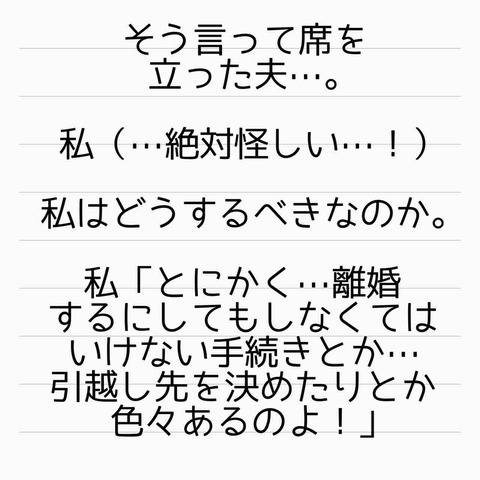 そう言って席を
立った夫…。
私（…絶対怪しい…！）
私はどうするべきなのか。
私「とにかく…離婚
するにしてもしなくては
いけない手続きとか…
引越し先を決めたりとか
色々あるのよ！」